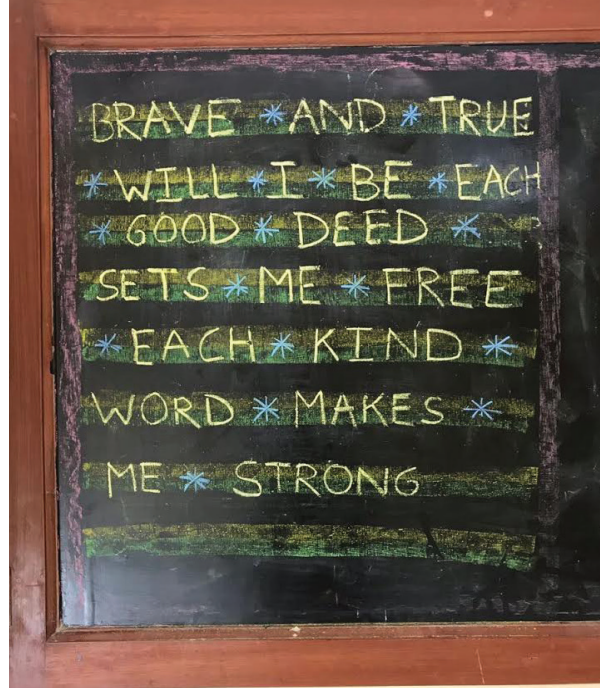 BRAVE * AND * TRUE
* WILL * I * BE * EACH
* GOOD * DEED *
SETS * ME * FREE
* EACH * KIND *
WORD * MAKES *
ME * STRONG